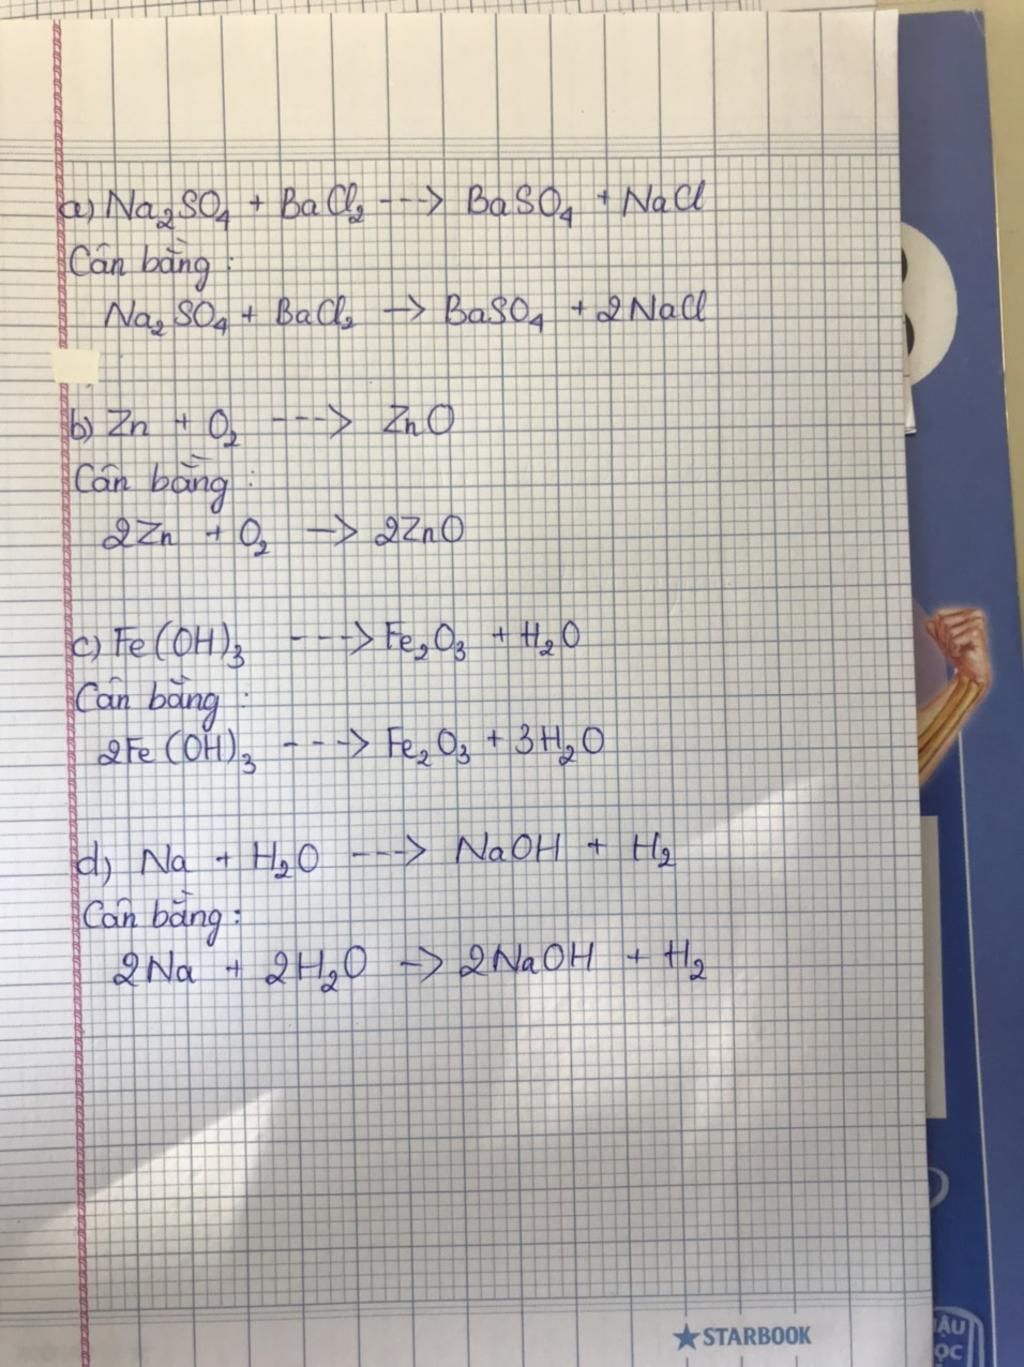 a) Na₂SO₄ + BaCl₂ ---> BaSO₄ + NaCl
Cân bằng :
Na₂SO₄ + BaCl₂ —> BaSO₄ + 2NaCl
b) Zn + O₂ ---> ZnO
Cân bằng :
2Zn + O₂ —> 2ZnO
c) Fe(OH)₃ ---> Fe₂O₃ + H₂O
Cân bằng :
2Fe(OH)₃ ---> Fe₂O₃ + 3H₂O
d) Na + H₂O ---> NaOH + H₂
Cân bằng :
2Na + 2H₂O —> 2NaOH + H₂
STARBOOK